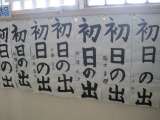 初日の出
初日の出
初日の出
初日の出
初日の出
初日の出
初日の出